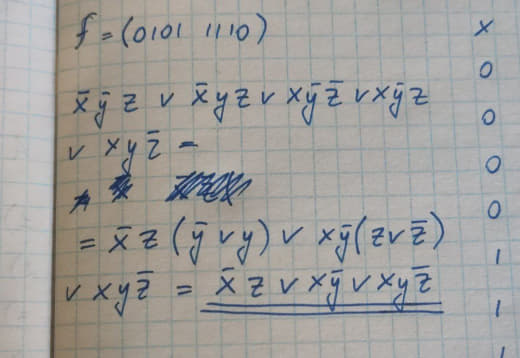 f = (0101 1110)
x̄ȳz ∨ x̄yz ∨ xȳz̄ ∨ xȳz
∨ xyz̄ =
= x̄z(ȳ∨y) ∨ xȳ(z∨z̄)
∨ xyz̄ = x̄z ∨ xȳ ∨ xyz̄
x
0
0
0
0
1
1